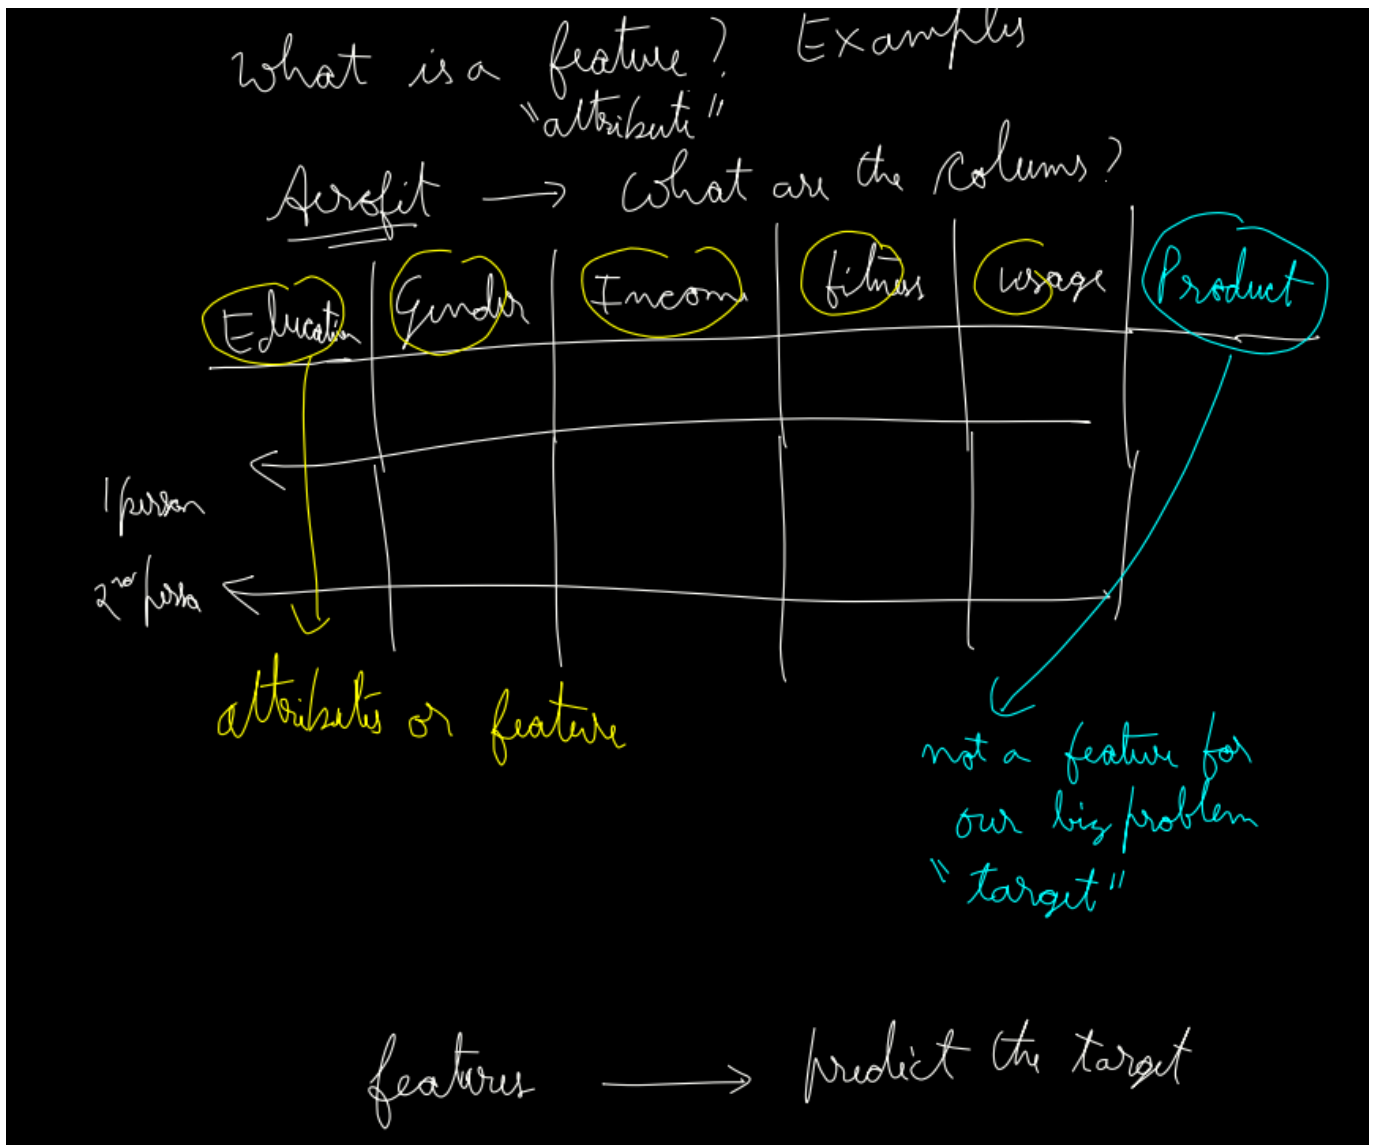 What is a feature? Examples
"attribute"
Aerofit → What are the colums?
Education Gender Income fitness usage Product
1 person
2nd perso
attributes or feature
not a feature for
our biz problem
"target"
features → predict the target